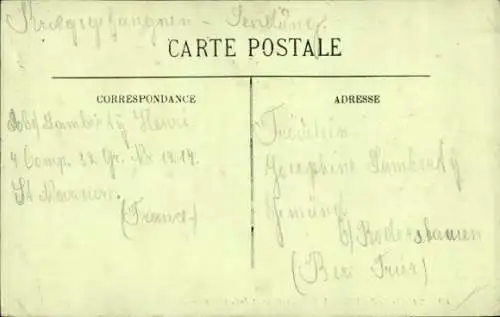 Kriegsgefangnen - Sendung
CARTE POSTALE
CORRESPONDANCE
Lamberty Henri
4 Comp. 12. Gr. No 1217.
St Nazaire.
(France)
ADRESSE
Fräulein
Josephine Lamberty
Gemünd
b/Rodershausen
(Bez Trier)